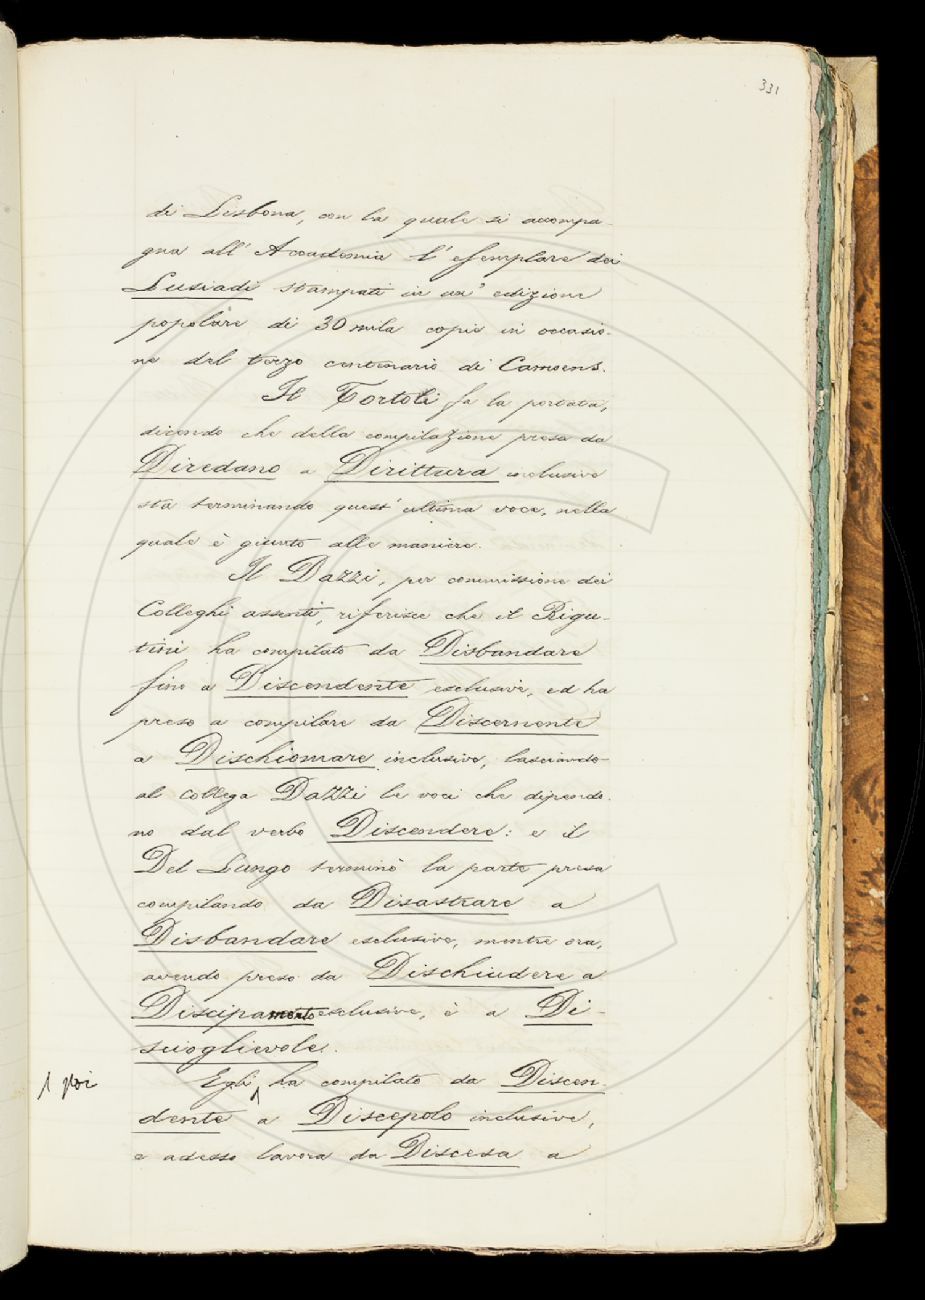 331
di Lisbona, con la quale si accompa-
gna all' Accademia l' esemplare dei
Lusiadi stampati in un' edizione
popolare di 30 mila copie in occasio-
ne del terzo centenario di Camoens.
Il Tortoli fa la portata,
dicendo che della compilazione presa da
Diredano a Dirittura inclusive
sta terminando quest' ultima voce, nella
quale è giunto alle maniere.
Il Dazzi, per commissione dei
Colleghi assenti, riferisce che il Rigu-
tini ha compilato da Disbandare
fino a Discendente esclusive, ed ha
preso a compilare da Discernente
a Dischiomare inclusive, lasciando
al collega Dazzi le voci che dipendo-
no dal verbo Discendere: e il
Del Lungo terminò la parte presa
compilando da Disastrare a
Disbandare esclusive, mentre ora,
avendo preso da Dischiudere a
Discipamento esclusive, è a Di-
scioglievole.
Egli ha compilato da Discen-
poi
dente a Discepolo inclusive,
e adesso lavora da Discesa a